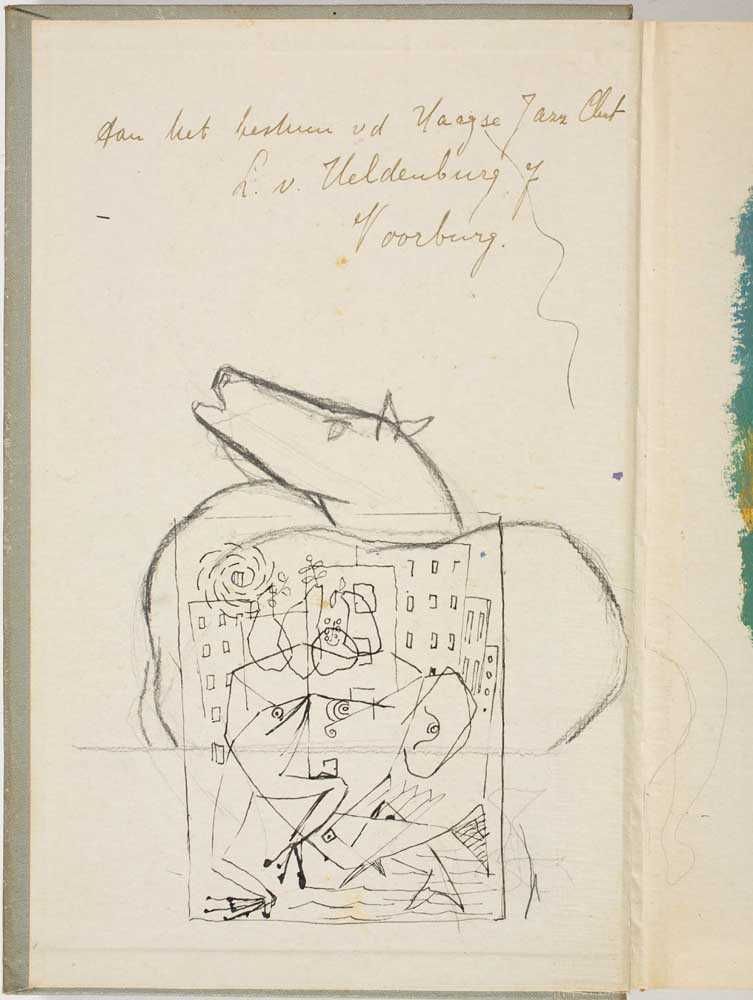 Aan het bestuur vd Haagse Jazz Club
L. v. Heldenburg
Voorburg.